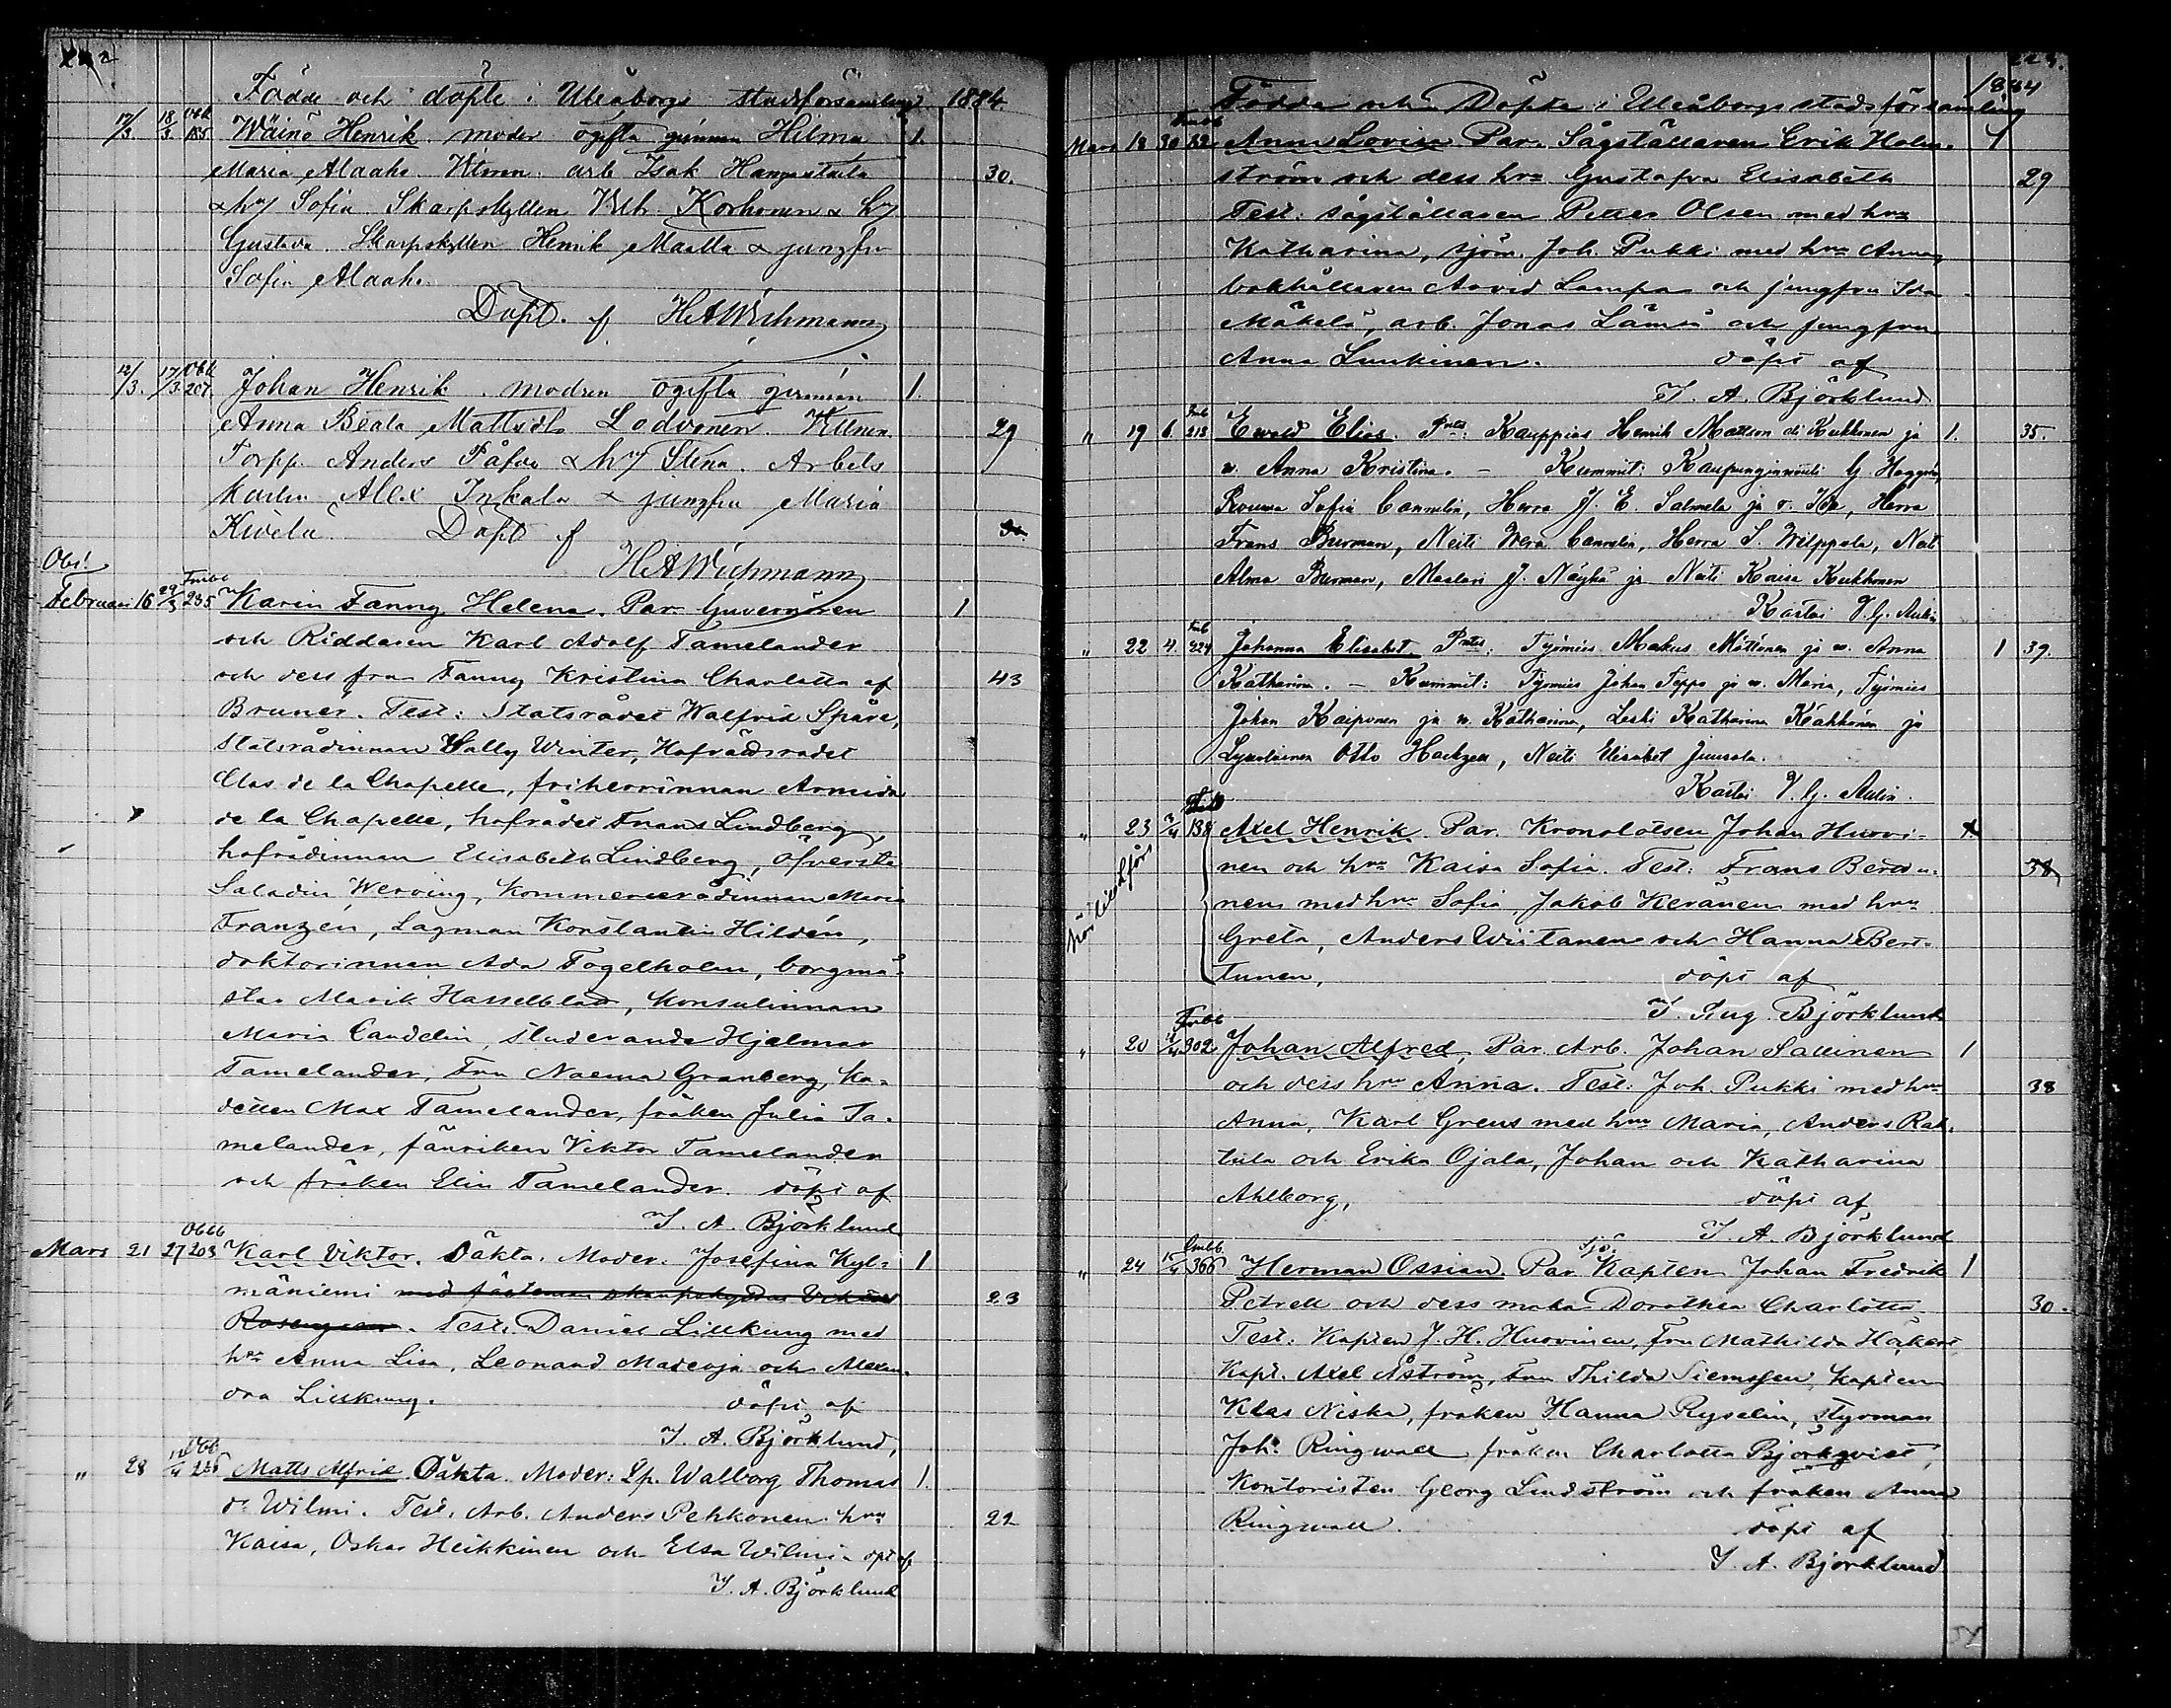 Födde och döpte i Uleåborgs stadsförsamling 1884.
17/3 18/3 185 Wäinö Henrik. moder ogifta qvinnan Hilma 1.
Maria Alaaho. Vitnen: arb Isak 30.
& hu Sofia. Skarpskytten Korhonen & hu
Gustava. Skarpskytten Henrik Maatta & jungfru
Sofia Alaaho.
Döpt. af HAWichmann
12/3. 17/3 207. Johan Henrik. modren ogifta qvinnan 1.
Anna Beata Mattsdr Lodvonen. Vitnen. 29
Torpp. Anders & hu Stina. Arbets
karlen Alex Inkala & jungfru Maria
Kivelä. Döpt af
HAWichmann
Obs!
Februari 16 29/3 235 Karin Fanny Helena. Par. Guvernören 1
och Riddaren Karl Adolf Tamelander
och dess fru Fanny Kristina Charlotta af 43
Bruner. Test: Statsrådet Walfrid Spåre,
Statsrådinnan Sally Winter, Hofrådsrådet
Clas de la Chapelle, friherrinnan Armida
de la Chapelle, hofrådet Frans Lindberg,
hofrådinnan Elisabeth Lindberg, öfverste
Saladin Werving, Kommerserådinnan Maria
Franzén, Lagman Konstantin Hildén,
doktorinnan Ada Fogelholm, borgmä-
star Marik Hasselblad, Konsulinnan
Maria Candelin, studerande Hjalmar
Tamelander, Fru Naema Granberg, ka-
detten Max Tamelander, fröken Julia Ta-
melander, fänriken Viktor Tamelander
och fröken Elin Tamelander. döpt af
I. A. Björklund
Mars 21 27 203 Karl Viktor. Oäkta. Moder. Josefina Kyl- 1
mäniemi med fästeman skarpskytten 23
Test. Daniel Lillkung med
hu Anna Lisa, Leonard Matenja och Alexan-
dra Lillkung. döpt af
I. A. Björklund,
" 28 Matts Alfrid Oäkta. Moder: Walborg Thomas 1.
dr Wilmi. Test. Arb. Anders Pehkonen hru 22
Kaisa, Oskar Heikkinen och Elsa Wilmi döpt af
I. A. Björklund
1884
Födda och Döpta i Uleåborgs stadsförsamling
Mars 18 30 Anna Lovisa Par. Sågställaren Erik Holm- 1
ström och dess hru Gustafva Elisabeth 29
Test: sågställaren Petter Olsen med hru
Katharina, sjöm. Joh. Pukki med hru Anna,
bokhållaren Arvid Lampa och jungfru Ida
Mäkelä, arb. Jonas Lämsä och jungfru
Anna Luukinen. döpt af
I. A. Björklund
" 19 6. 213 Ewald Elias. Prntes: Kauppias Henrik Mattson eli Kukkonen ja 1. 35.
w. Anna Kristina. - Kummit:
Rouwa Sofia Cannelin, Herra J. E. Salmela ja r. Ida, Herra
Frans Burman, Neiti Wera Cannelin, Herra S. Wilppola, Neit
Alma Burman, Maalari J. Näyhä ja Neiti Kaisa Kukkonen
Kastoi
" 22 4. 224 Johanna Elisabet Prntes: Työmies Markus Möttönen ja w. Anna 1 39.
Katharina. - Kummit: Työmies Johan Teppo ja w. Maria, Työmies
Johan Kaiponen ja w. Katharina, Leski Katharina Kähkönen ja
Otto Hackzell, Neiti Elisabet Juusola.
Kastoi
" 23 2/4 138 Axel Henrik. Par. Kronolotsen Johan Huovi- 1
nen och hru Kaisa Sofia. Test: Frans Bertu- 38
nen med hru Sofia, Jakob Keränen med hru
Greta, Anders Wiitanen och Hanna Ber-
tunen, döpt af
I. Aug. Björklund
" 20 302 Johan Alfred, Par. Arb. Johan Sallinen 1
och dess hru Anna. Test: Joh. Pukki med hru 38
Anna, Karl Greus med hru Maria, Anders Rah-
tula och Erika Ojala, Johan och Katharina
Ahlborg, döpt af
I. A. Björklund
" 24 15/4 366 Herman Ossian. Par. Sjö Kapten Johan Fredrik 1
Petrell och dess maka Dorothea Charlotta 30.
Test: Kapten J. H. Huovinen, Fru Mathilda Håkans
Kapt. Axel Åström, Fru Thilda Siemssen, Kapten
Klas Niska, fröken Hanna Ryselin, styrman
Joh. Ringwall fröken Charlotta Björkqvist,
Kontoristen Georg Lindström och fröken Anna
Ringwall. döpt af
I. A. Björklund